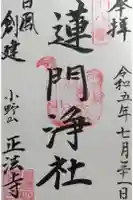 奉拝
令和五年七月二十一日
蓮門浄社
白鳳
創建
小野山
正法寺